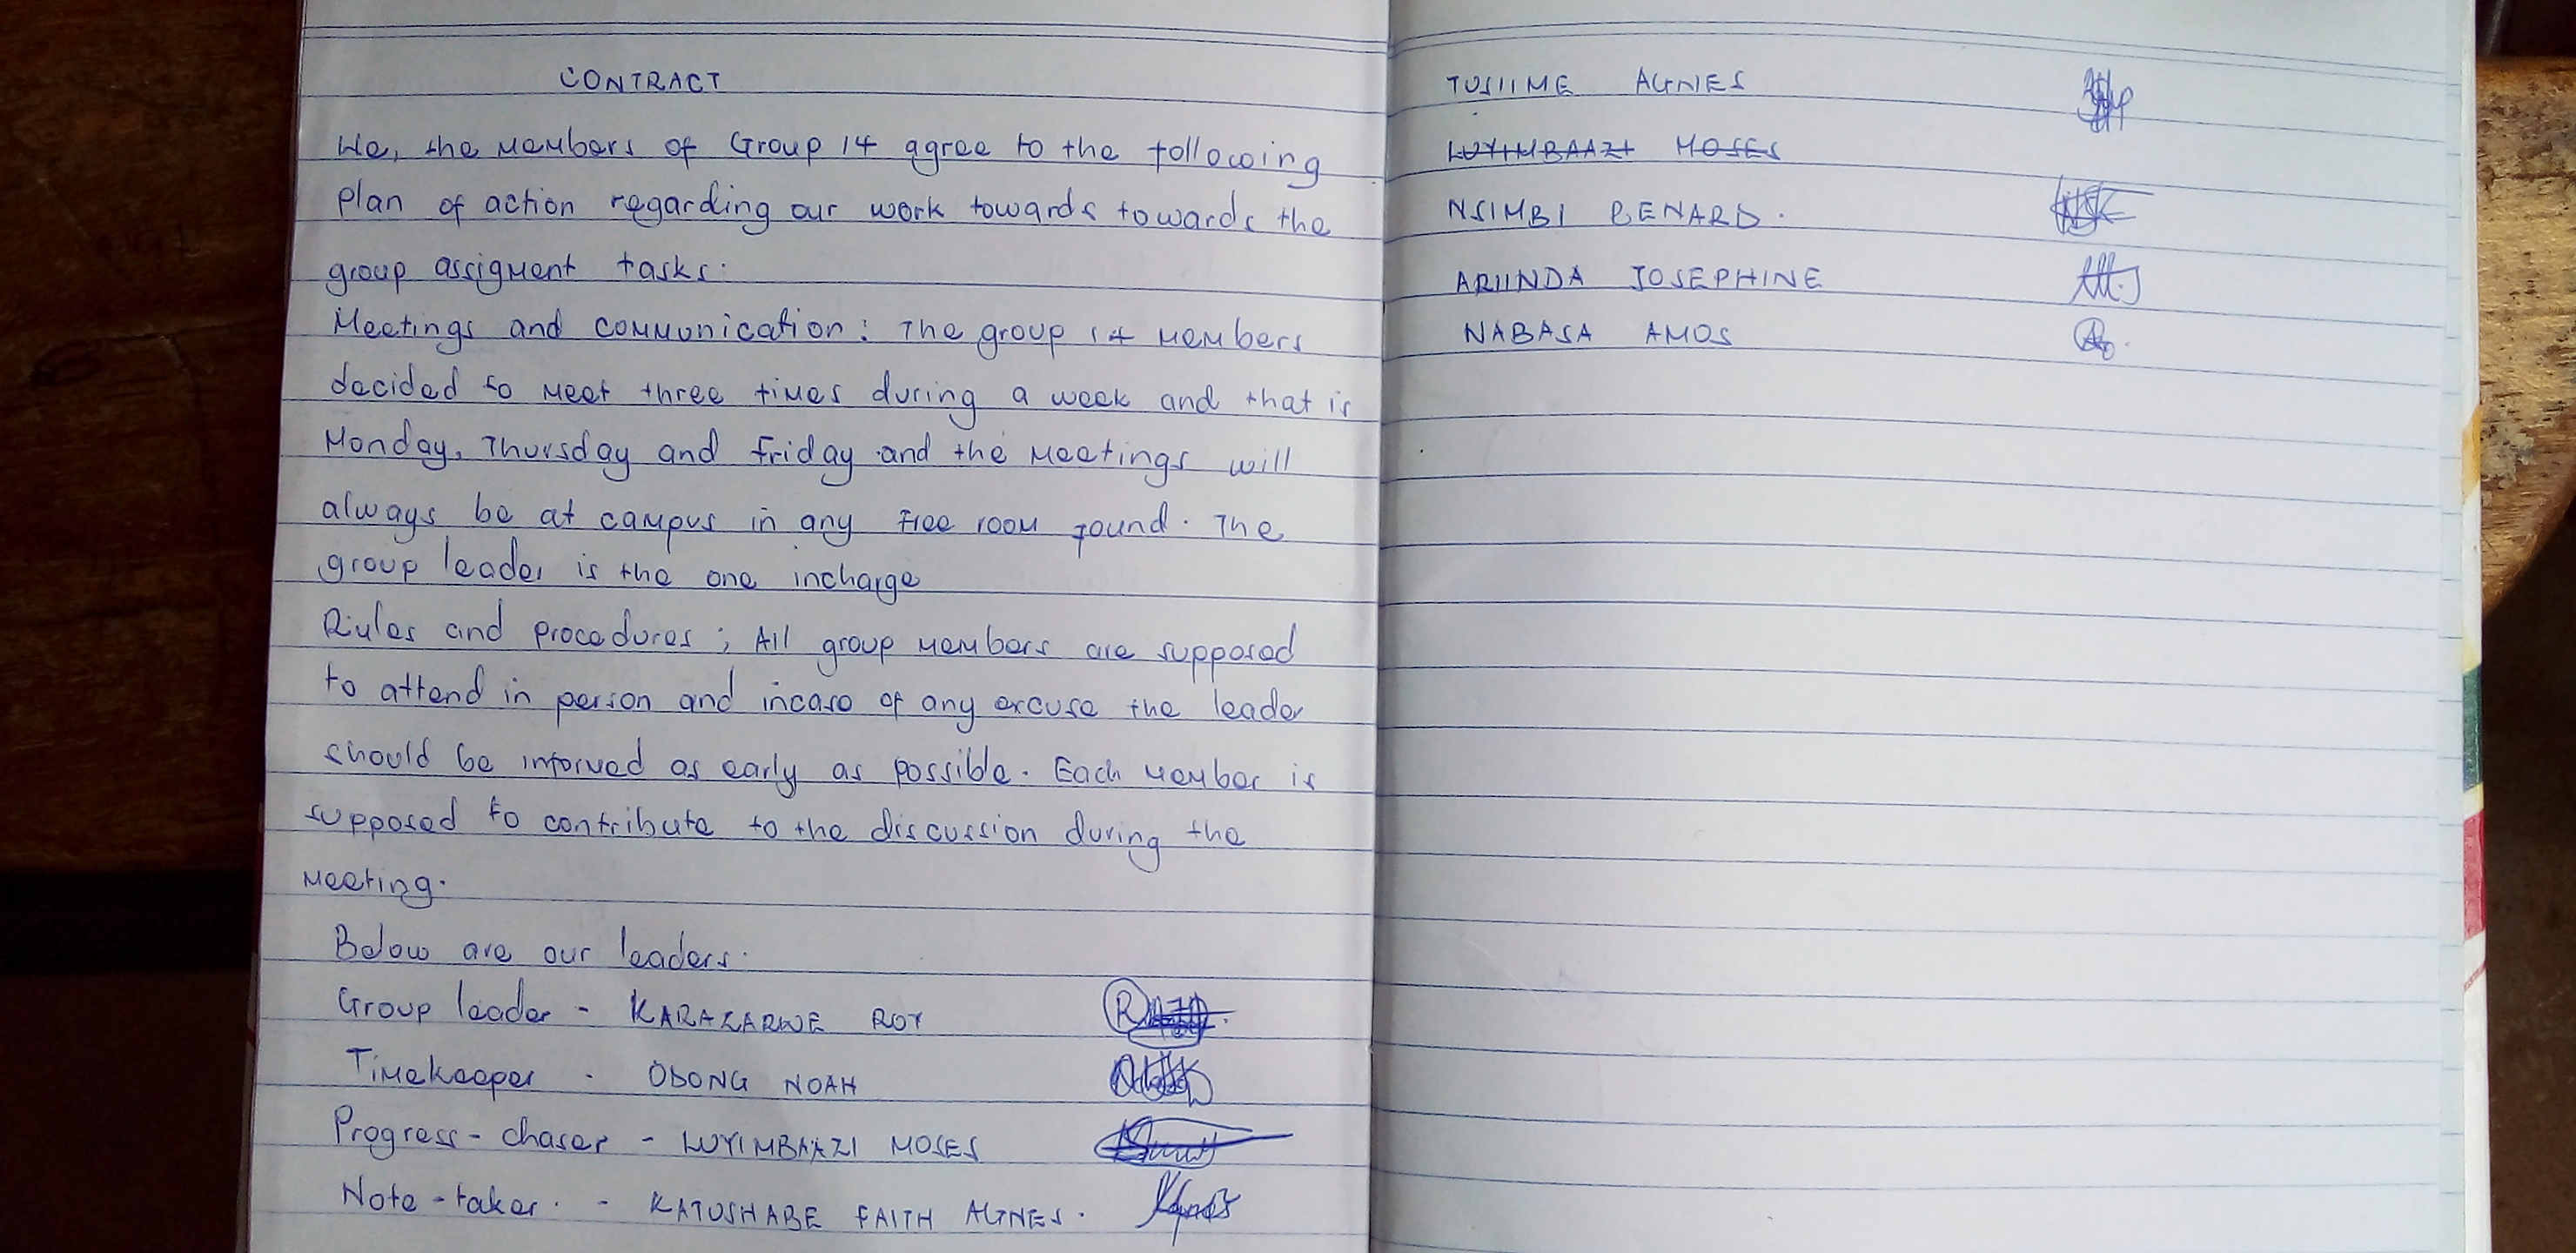 CONTRACT
We, the members of Group 14 agree to the following
plan of action regarding our work towards towards the
group assigment tasks.
Meetings and communication: The group 14 members
decided to meet three times during a week and that is
Monday, Thursday and Friday and the meetings will
always be at campus in any free room found. The
group leader is the one incharge
Rules and procedures; All group members are supposed
to attend in person and incase of any excuse the leader
should be informed as early as possible. Each member is
supposed to contribute to the discussion during the
meeting.
Below are our leaders.
Group leader - KARAKARWE ROY
Timekeeper - ODONG NOAH
Progress-chaser - LUYIMBAAZI MOSES
Note-taker. - KATUSHABE FAITH AGNES.
TUSIIME AGNES
LUYIMBAAZI MOSES
NSIMBI BENARD.
ARIINDA JOSEPHINE
NABASA AMOS